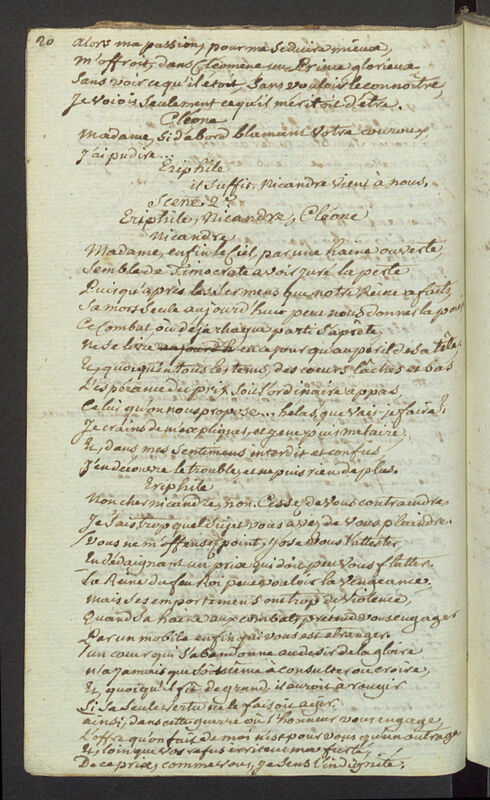 20 alors ma passion, pour me Seduire mieux,
m'offroit, dans Cléomene un Prince glorieux
Sans voir ce qu'il étoit, Sans vouloir le connoître
Je voiois Seulement ce qu'il méritoit d'être.
Cléone
Madame, Si d'abord blamant votre courroux
J'ai pu dire...
Eriphile
il Suffit, Nicandre vient à nous.
Scene 2e
Eriphile, Nicandre, Cléone
Nicandre
Madame, enfin le Ciel, par une haine ouverte,
Semble de Timocrate avoir juré la perte
Puisqu'après les Sermens que notre Reine a faits,
Sa mort Seule aujourd'hui peut nous donner la paix
Ce Combat où déja chaque parti S'aprête
Ne Se livre aujourd'h en ce jour qu'au peril de Sa tête.
Et, quoiqu'en tous les tems, des coeurs lâches et bas
L'espérance du prix Soit l'ordinaire appas
Celui qu'on nous propose... helas, que vais-je faire?
Je crains de m'expliquer, et je ne puis me taire,
Et, dans mes Sentimens interdit et confus
J'en découvre le trouble, et ne puis rien de plus.
Eriphile
Non cher nicandre, non. Cessez de vous contraindre,
Je Sais trop quel Sujet vous avez de vous plaindre.
Vous ne m'offensez point, j'ose vous l'attester
En dédaignant un prix qui doit peu vous flatter.
La Reine du feu Roi peut vouloir la vengeance
mais Ses emportemens ont trop de violence,
Quand Sa haine aux combats pretend vous engager
Par un mobile enfin qui vous est etranger.
Un coeur qui S'abandonne au desir de la gloire
N'a jamais que Soi même à consulter ou croire,
Et, quoiqu'il fit de grand, il auroit à rougir
Si Sa Seule vertu ne le faisoit agir.
ainsi, dans cette guerre où l'honneur vous engage,
L'offre qu'on fait de moi n'est pour vous qu'un outrage
Et, loin que vos refus irritent ma fierté,
De ce prix, comme vous, je Sens l'indignité;